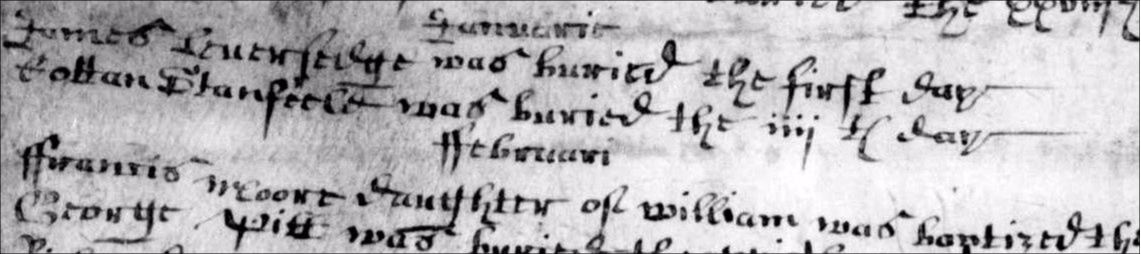 the xxviij
Januarie
James Leversedge was buried the first day
Tottan Stanfeeld was buried the iiij th day
ffebruari
ffrancis moore daughter of william was baptized the
George Pitt was buried the